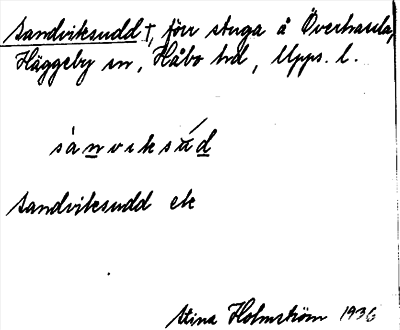 Sandviksudd †, förr stuga å Överhassla,
Häggeby sn, Håbo hd, Upps. l.
sànviksúd
Sandviksudd ek
Stina Holmström 1936